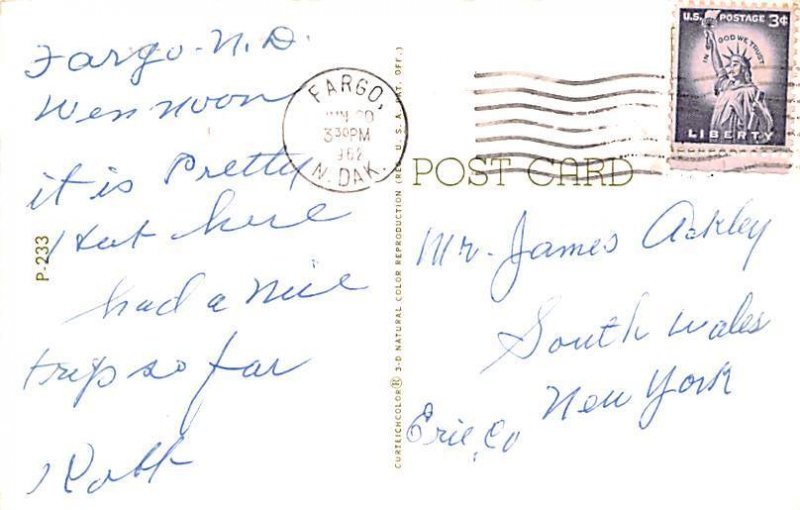 Fargo. N. D.
Wen noon
it is Pretty
Hot here
had a nice
trip so far
P-233
FARGO,
3 30 PM
1962
N. DAK.
CURTEICHCOLOR® 3-D NATURAL COLOR REPRODUCTION (REG. U.S.A. PAT. OFF.)
U.S. POSTAGE 3¢
IN GOD WE TRUST
LIBERTY
POST CARD
Mr. James Ackley
South Wales
New York
Erie, Co